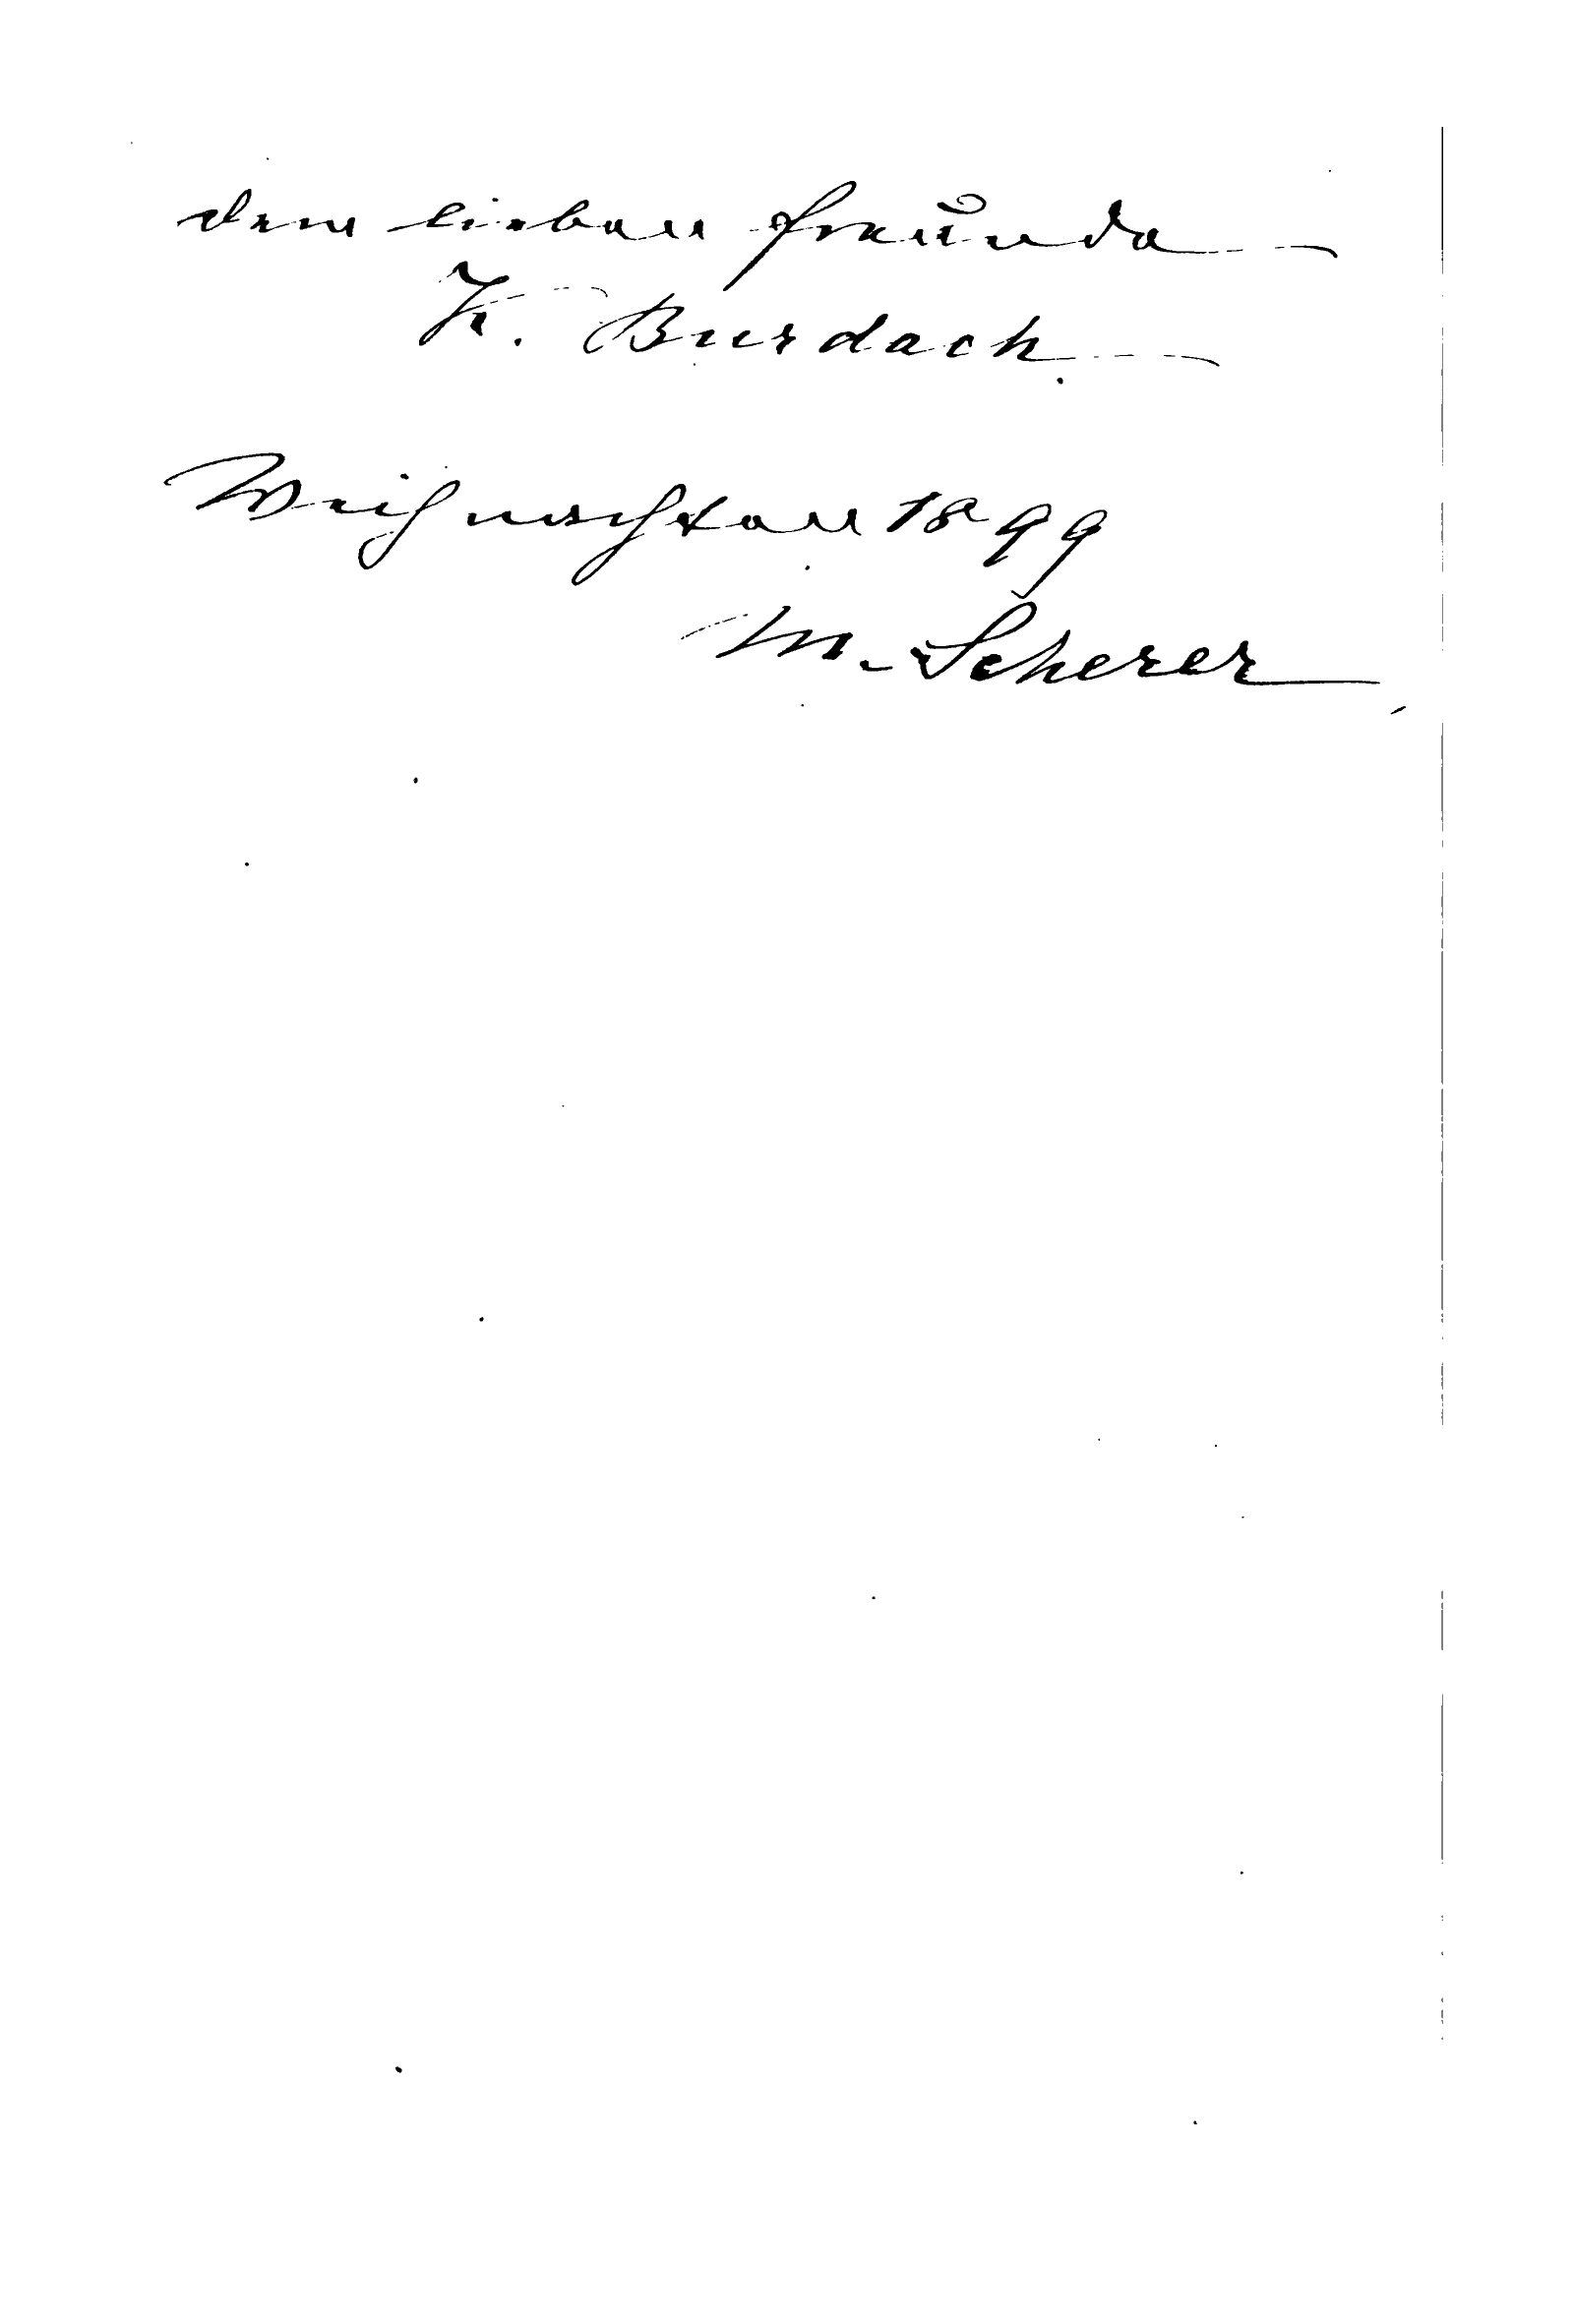 dem lieben Freunde
K. Burdach
Weihnachten 1899
M. Scherer